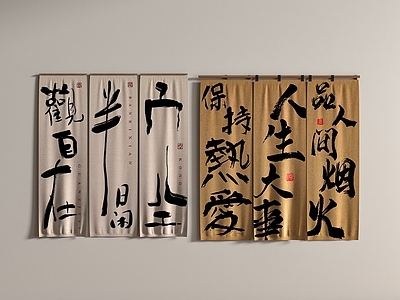 觀自在
半日闲
保持熱愛
人生大事
品人间烟火